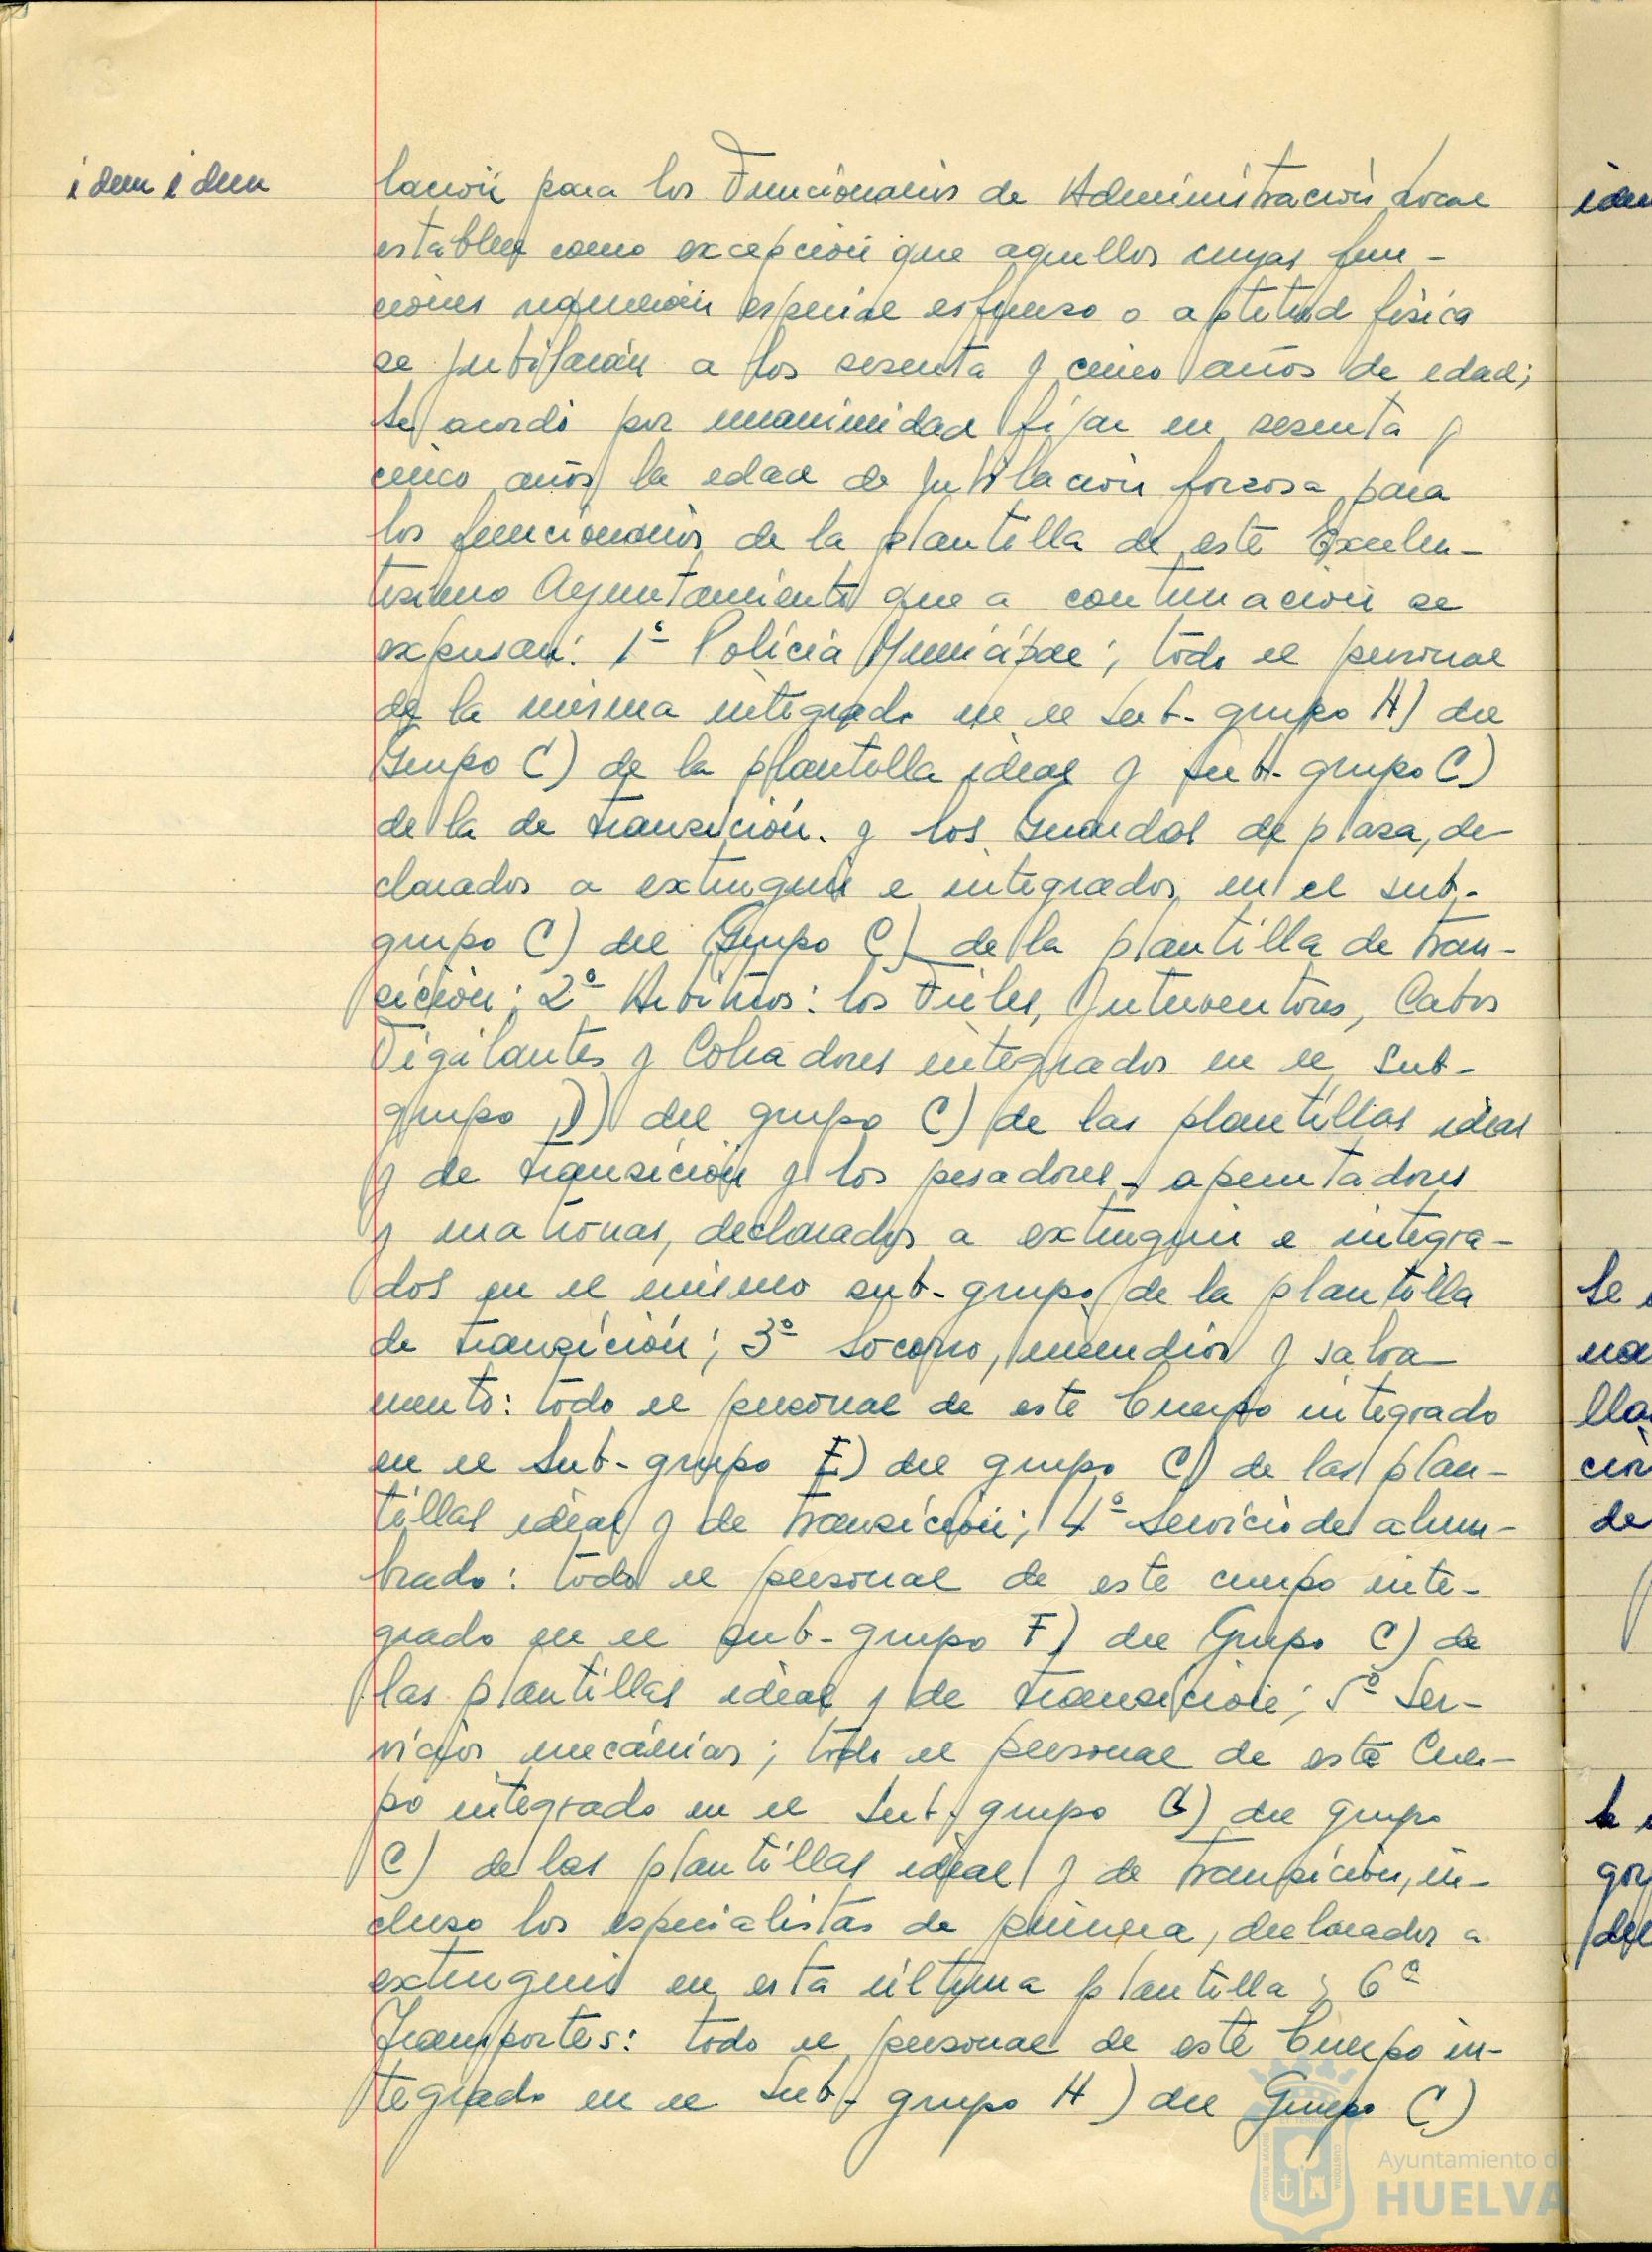 idem idem
lación para los Funcionarios de Administración Local
establece como excepción que aquellos cuyas fun-
ciones requieran especial esfuerzo o aptitud física
se jubilarán a los sesenta y cinco años de edad;
se acordó por unanimidad fijar en sesenta y
cinco años la edad de jubilación forzosa para
los funcionarios de la plantilla de este Excelen-
tísimo Ayuntamiento que a continuación se
expresan: 1º Policía Municipal; todo el personal
de la misma integrado en el sub-grupo
Grupo C) de la plantilla ideal y sub-grupo C)
de la de transición. y los Guardas de plaza, de-
clarados a extinguir e integrados en el sub-
grupo C) del Grupo C) de la plantilla de tran-
sición; 2º Arbitrios: los Fieles, Interventores, Cabos
Vigilantes y Cobradores integrados en el Sub-
grupo D) del grupo C) de las plantillas ideal
y de transición y los pesadores-apuntadores
y matronas, declarados a extinguir e integra-
dos en el mismo sub-grupo de la plantilla
de transición; 3º Socorro, incendios y salva-
mento: todo el personal de este Cuerpo integrado
en el Sub-grupo E) del grupo C) de las plan-
tillas ideal y de transición; 4º Servicio de alum-
brado: todo el personal de este cuerpo inte-
grado en el sub-grupo F) del Grupo C) de
las plantillas ideal y de transición; 5º Ser-
vicios mecánicos; todo el personal de este Cuer-
po integrado en el Sub-grupo G) del grupo
C) de las plantillas ideal y de transición, in-
cluso los especialistas de primera, declarados a
extinguir en esta última plantilla; 6º
Transportes: todo el personal de este Cuerpo in-
tegrado en el Sub-grupo H) del Grupo C)
Ayuntamiento de
HUELVA